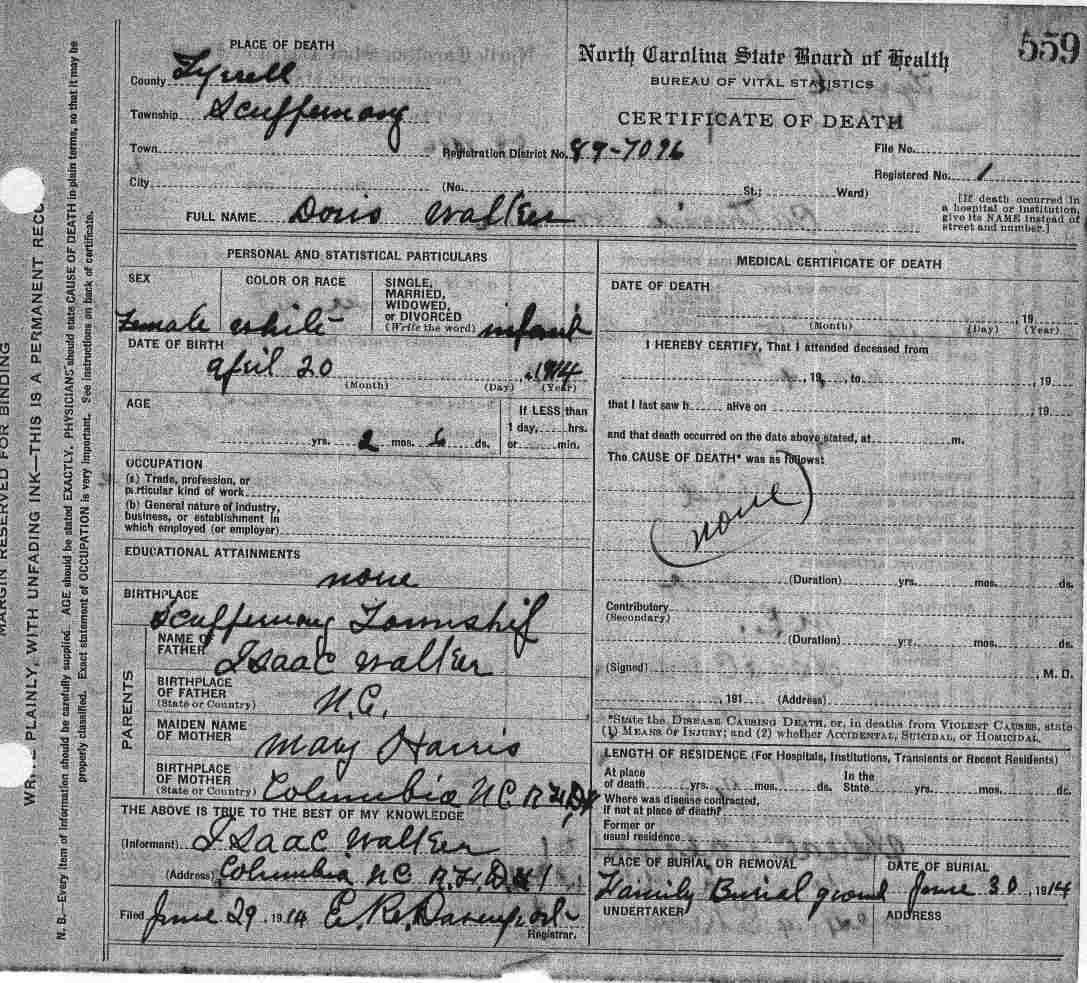 559
North Carolina State Board of Health
BUREAU OF VITAL STATISTICS
CERTIFICATE OF DEATH
PLACE OF DEATH
County Tyrrell
Township Scuppernong
Town
Registration District No. 89-7096
File No.
Registered No. 1
City
(No. St.; Ward)
[If death occurred in
a hospital or institution,
give its NAME instead of
street and number.]
FULL NAME Doris Walker
PERSONAL AND STATISTICAL PARTICULARS
SEX
Female
COLOR OR RACE
white
SINGLE,
MARRIED,
WIDOWED,
or DIVORCED
(Write the word) infant
DATE OF BIRTH
April 20, 1914
(Month) (Day) (Year)
AGE
yrs. 2 mos. 6 ds.
If LESS than
1 day, hrs.
or min.
OCCUPATION
(a) Trade, profession, or
particular kind of work
(b) General nature of industry,
business, or establishment in
which employed (or employer)
EDUCATIONAL ATTAINMENTS
none
BIRTHPLACE
Scuppernong Township
PARENTS
NAME OF
FATHER Isaac Walker
BIRTHPLACE
OF FATHER
(State or Country) N.C.
MAIDEN NAME
OF MOTHER Mary Harris
BIRTHPLACE
OF MOTHER
(State or Country) Columbia N.C. R.F.D.
THE ABOVE IS TRUE TO THE BEST OF MY KNOWLEDGE
(Informant) Isaac Walker
(Address) Columbia N.C. R.F.D. #1
Filed June 29, 1914 E. R. Davenport
Registrar.
MEDICAL CERTIFICATE OF DEATH
DATE OF DEATH
, 19
(Month) (Day) (Year)
I HEREBY CERTIFY, That I attended deceased from
, 19 , to , 19
that I last saw h alive on , 19
and that death occurred on the date above stated, at m.
The CAUSE OF DEATH* was as follows:
(none)
(Duration) yrs. mos. ds.
Contributory
(Secondary)
(Duration) yrs. mos. ds.
(Signed) , M. D.
, 191 (Address)
*State the DISEASE CAUSING DEATH, or, in deaths from VIOLENT CAUSES, state
(1) MEANS OF INJURY; and (2) whether ACCIDENTAL, SUICIDAL, OR HOMICIDAL.
LENGTH OF RESIDENCE (For Hospitals, Institutions, Transients or Recent Residents)
At place
of death yrs. mos. ds.
In the
State yrs. mos. ds.
Where was disease contracted,
if not at place of death?
Former or
usual residence
PLACE OF BURIAL OR REMOVAL
Family Burial ground
DATE OF BURIAL
June 30, 1914
UNDERTAKER
ADDRESS
MARGIN RESERVED FOR BINDING
PLAINLY, WITH UNFADING INK—THIS IS A PERMANENT
N. B.—Every item of information should be carefully supplied. AGE should be stated EXACTLY. PHYSICIANS should state CAUSE OF DEATH in plain terms, so that it may be
properly classified. Exact statement of OCCUPATION is very important. See instructions on back of certificate.